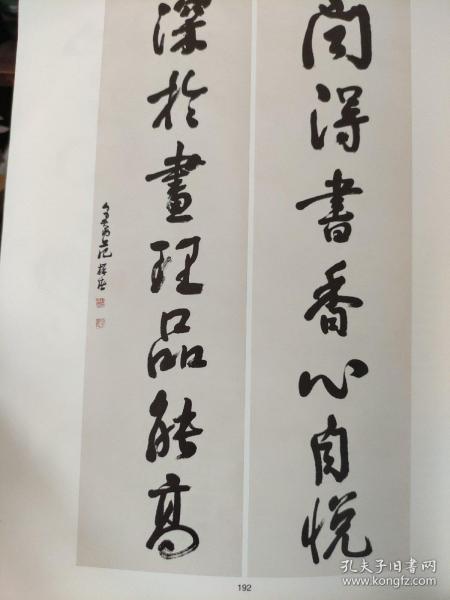 闻得書香心自悦
深於畫理品能高
192
孔夫子旧书网
www.kongfz.com